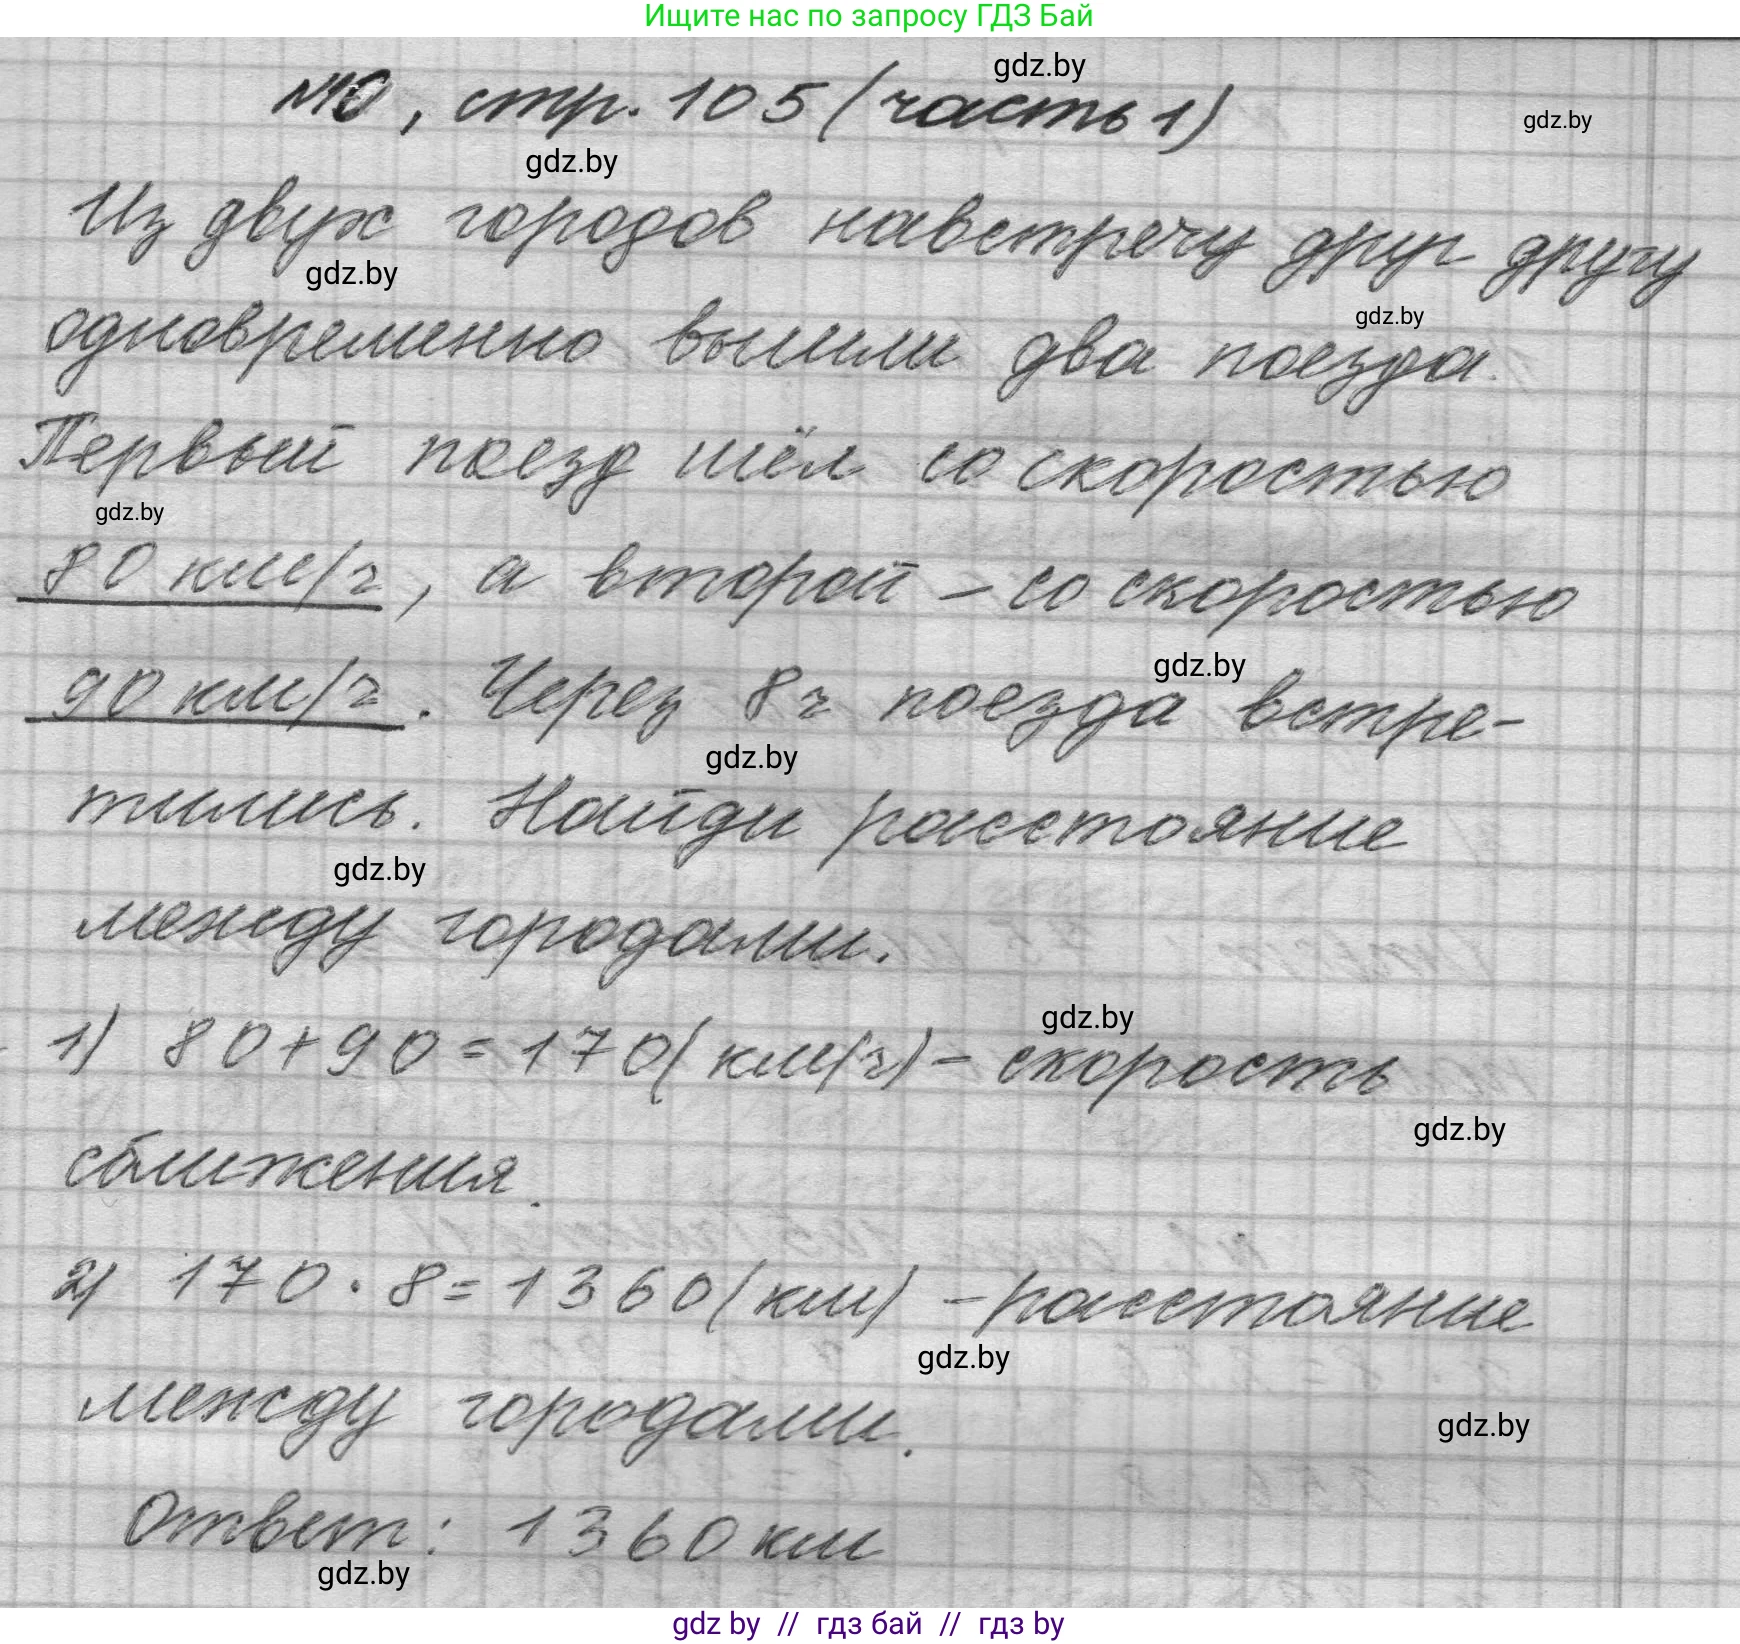 Ищите нас по запросу ГДЗ Бай
gdz.by
№10, стр. 105 (часть 1)
gdz.by
gdz.by
Из двух городов навстречу друг другу
gdz.by
gdz.by
одновременно вышли два поезда.
Первый поезд шёл со скоростью
gdz.by
80 км/ч, а второй – со скоростью
gdz.by
90 км/ч. Через 8 ч поезда встре-
gdz.by
тились. Найди расстояние
gdz.by
между городами.
gdz.by
1) 80+90=170(км/ч) – скорость
gdz.by
сближения.
2) 170·8=1360(км) – расстояние
gdz.by
между городами.
gdz.by
Ответ: 1360 км
gdz.by
gdz by // гдз бай // гдз by